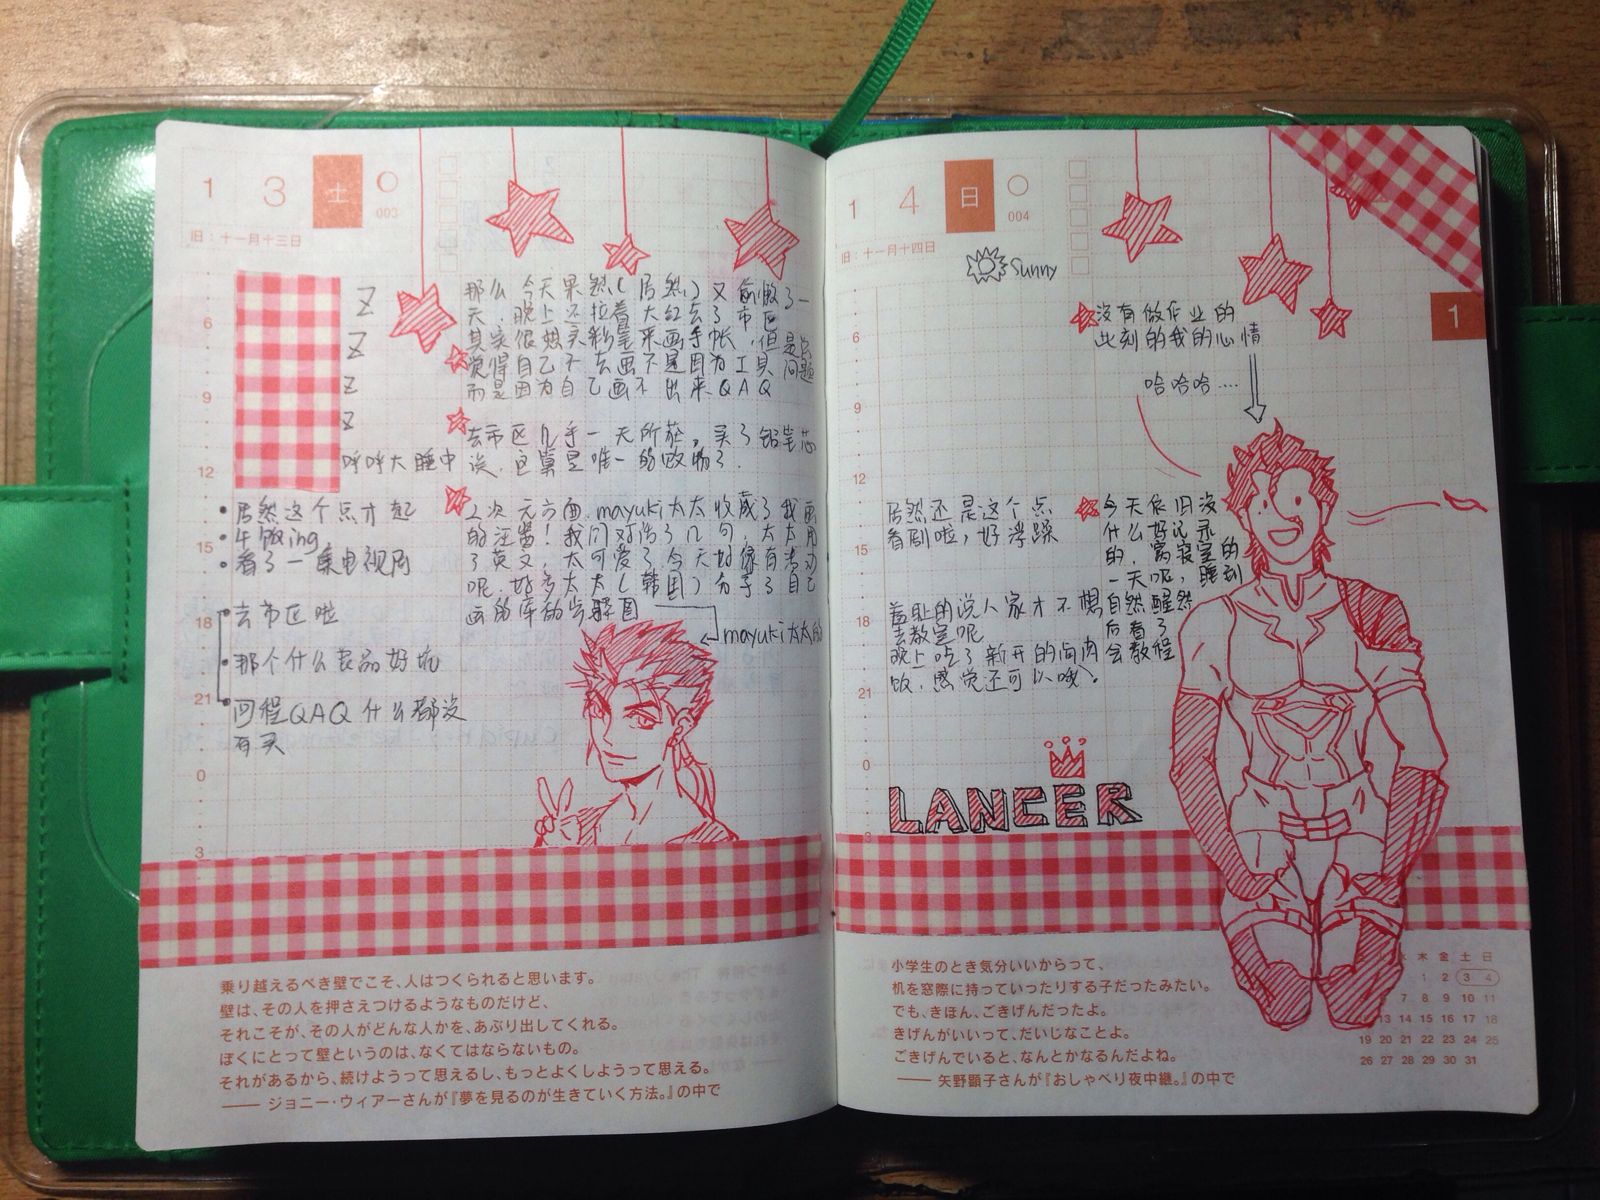 1 3 土
003
旧：十一月十三日
6
9
12
15
18
21
0
3
Z
Z
Z
Z
呼呼大睡中
那么今天果然(居然)又
天,晚上还拉着大红去了市区
其实很想买彩笔来画手帐,但是总
觉得自己不去画不是因为工具问题
而是因为自己画不出来QAQ
去市区几乎一无所获,买了铅笔芯
这算是唯一的收物了.
二次元方面.mayuki太太收藏了我画
的汪酱!我们对话了几句,太太用
了英文,太可爱了.今天好像有活动
呢,好多太太(韩国)分享了自己
画的库的步骤图
mayuki太太的
居然这个点才起
午饭ing
看了一集电视剧
去市区啦
那个什么良品好坑
回程QAQ什么都没
有买
乗り越えるべき壁でこそ、人はつくられると思います。
壁は、その人を押さえつけるようなものだけど、
それこそが、その人がどんな人かを、あぶり出してくれる。
ぼくにとって壁というのは、なくてはならないもの。
それがあるから、続けようって思えるし、もっとよくしようって思える。
—— ジョニー・ウィアーさんが『夢を見るのが生きていく方法。』の中で
1 4 日
004
旧：十一月十四日
Sunny
1
6
9
12
15
18
21
0
3
没有做作业的
此刻的我的心情
哈哈哈....
居然还是这个点
看剧啦,好浮躁
羞耻的说人家才不想
去教室呢
晚上吃了新开的卤肉
饭,感觉还可以哦。
今天依旧没
什么好记录
的,窝寝室的
一天呢,睡到
自然醒然
后看了
会教程
LANCER
小学生のとき気分いいからって、
机を窓際に持っていったりする子だったみたい。
でも、きほん、ごきげんだったよ。
きげんがいいって、だいじなことよ。
ごきげんでいると、なんとかなるんだよね。
—— 矢野顕子さんが『おしゃべり夜中継。』の中で
水 木 金 土 日
1 2 3 4
7 8 9 10 11
13 14 15 16 17 18
19 20 21 22 23 24 25
26 27 28 29 30 31